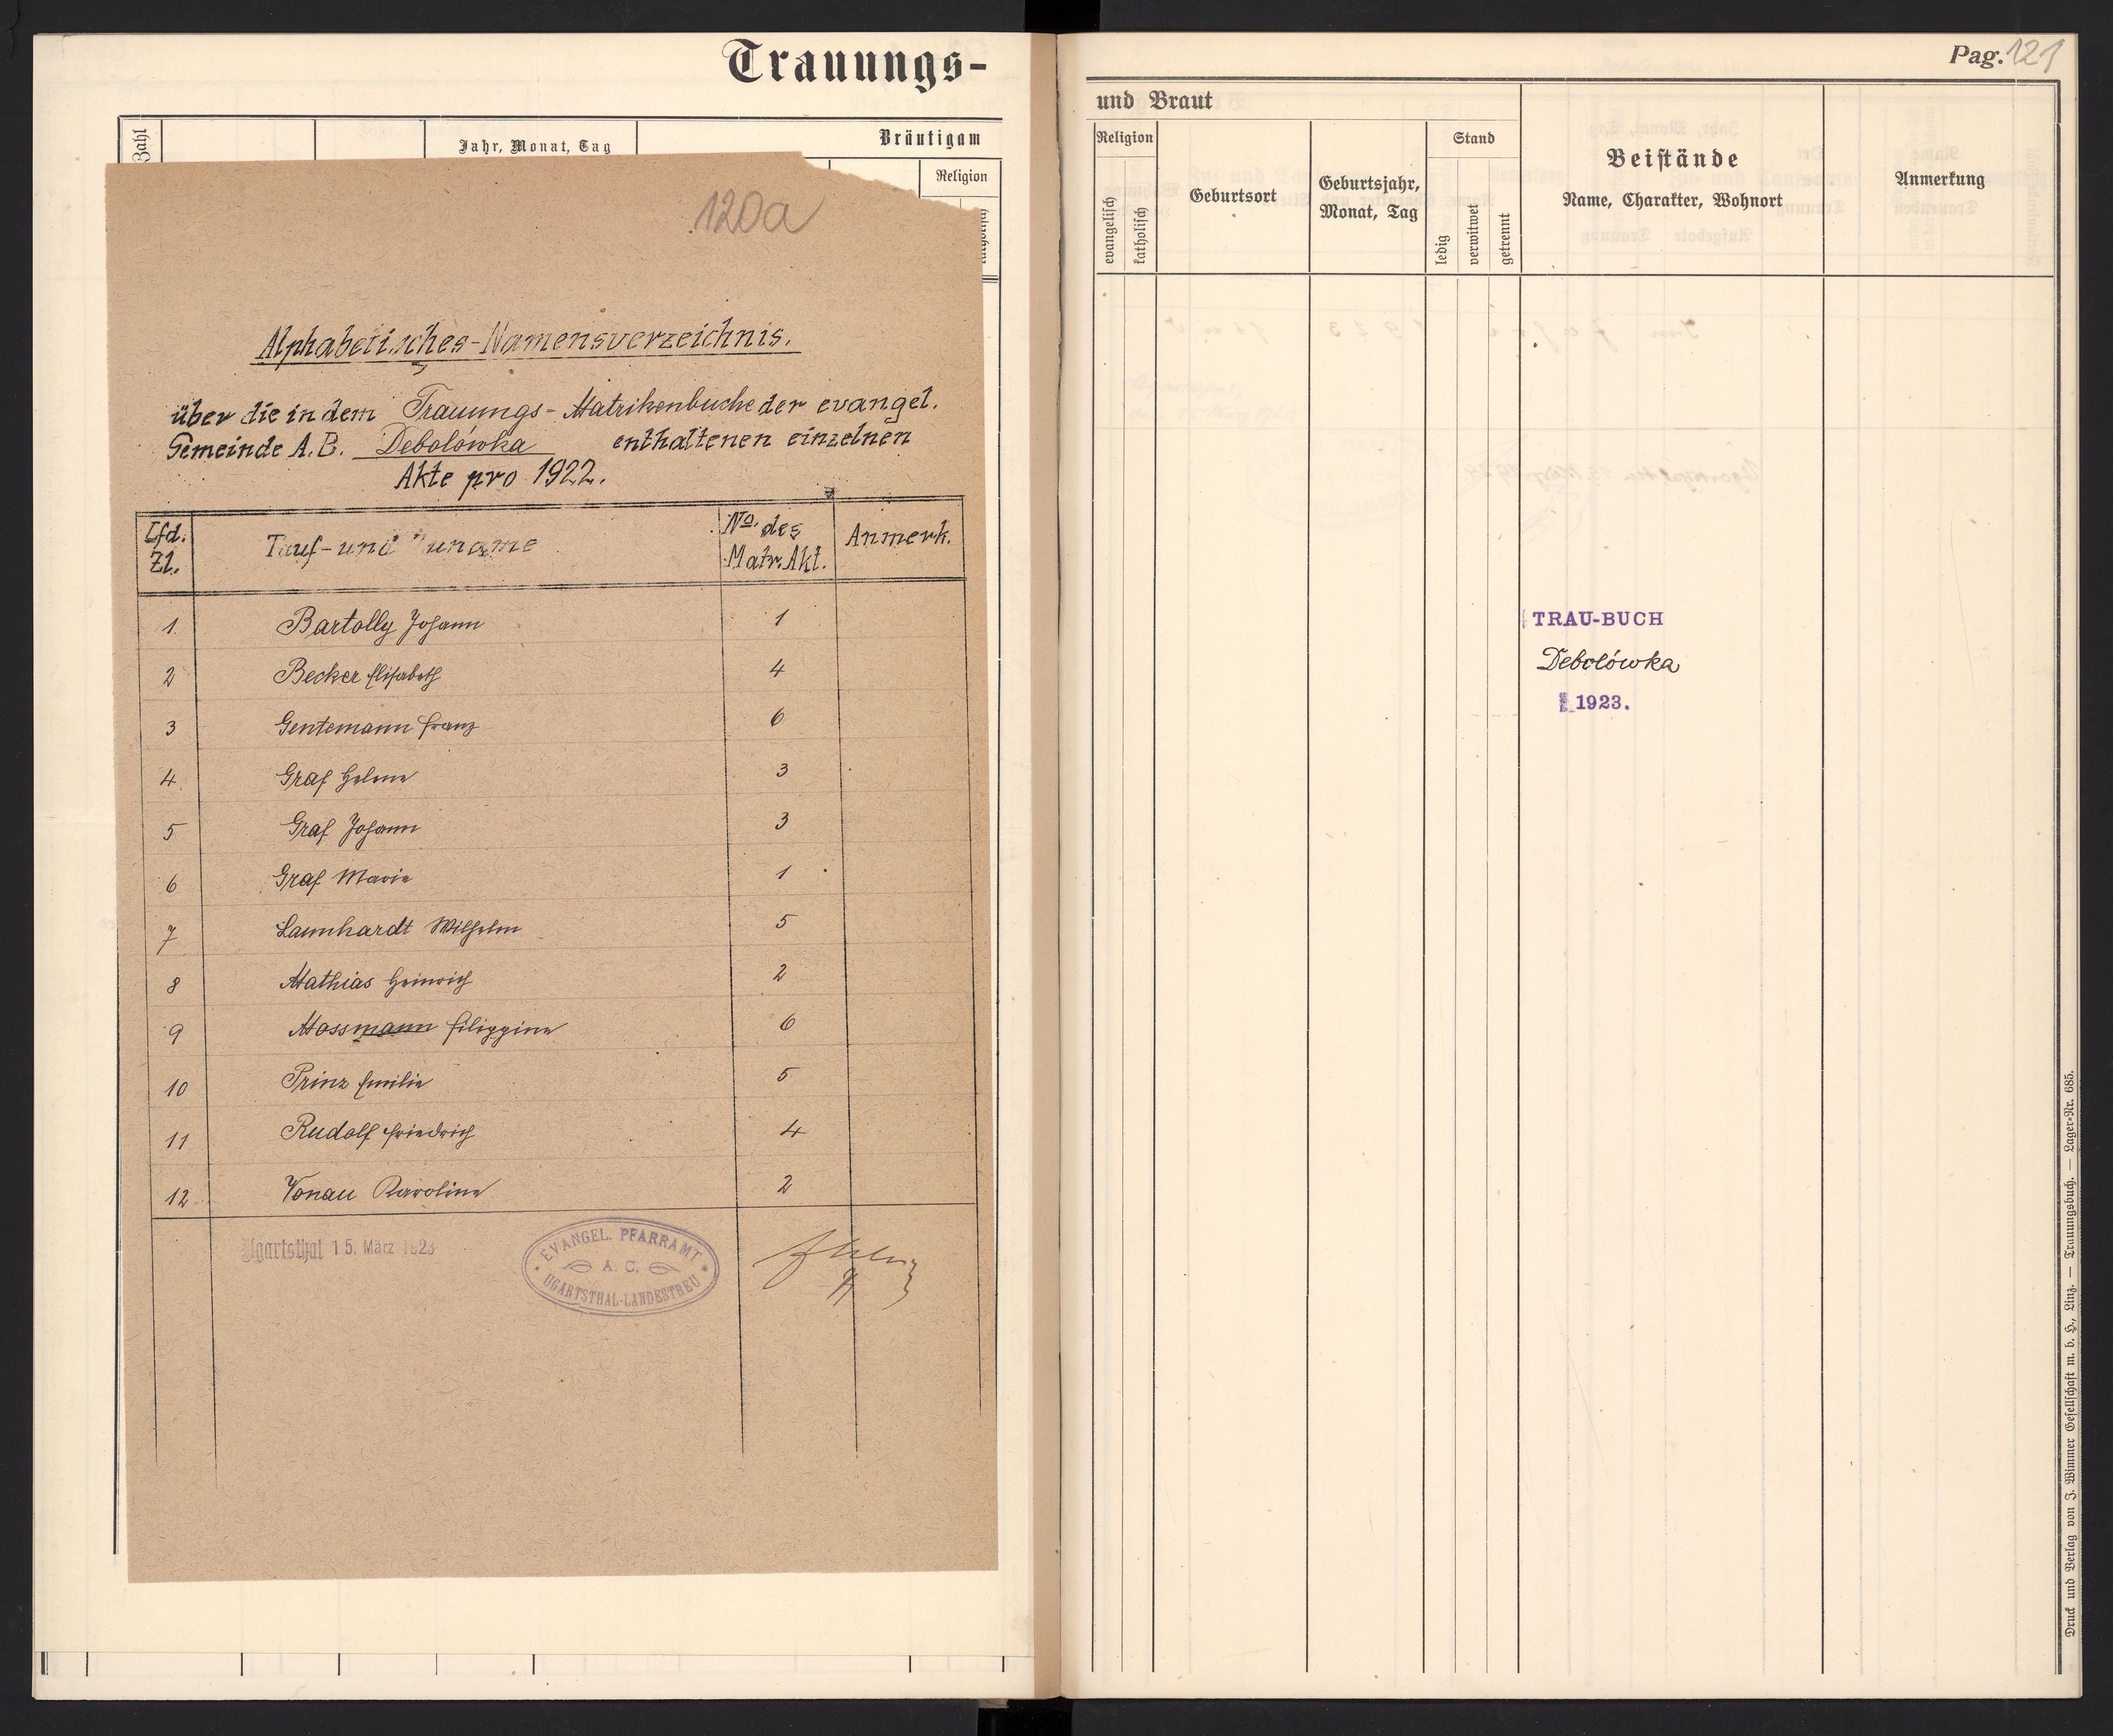 Trauungs-
Zahl
Jahr, Monat, Tag
Bräutigam
Religion
katholisch
120a
Alphabetisches-Namensverzeichnis.
über die in dem Trauungs-Matrikenbuche der evangel.
Gemeinde A.B. Debolówka enthaltenen einzelnen
Akte pro 1922.
Lfd. Zl. Tauf- und Zuname No. des Matr. Akt. Anmerk.
1 Bartolly Johann 1
2 Becker Elisabeth 4
3 Gentemann Franz 6
4 Graf Helene 3
5 Graf Johann 3
6 Graf Marie 1
7 Launhardt Wilhelm 5
8 Mathias Heinrich 2
9 Mossmann Filippine 6
10 Prinz Emilie 5
11 Rudolf Friedrich 4
12 Vonau Karoline 2
Ugartsthal 15. März 1923
EVANGEL. PFARRAMT
A. C.
UGARTSTHAL-LANDESTREU
Pag. 121
und Braut
Religion
evangelisch
katholisch
Geburtsort
Geburtsjahr,
Monat, Tag
Stand
ledig
verwitwet
getrennt
Beistände
Name, Charakter, Wohnort
Anmerkung
TRAU-BUCH
Debolówka
1923.
Druck und Verlag von J. Wimmer Gesellschaft m. b. H., Linz. — Trauungsbuch. — Lager-Nr. 685.